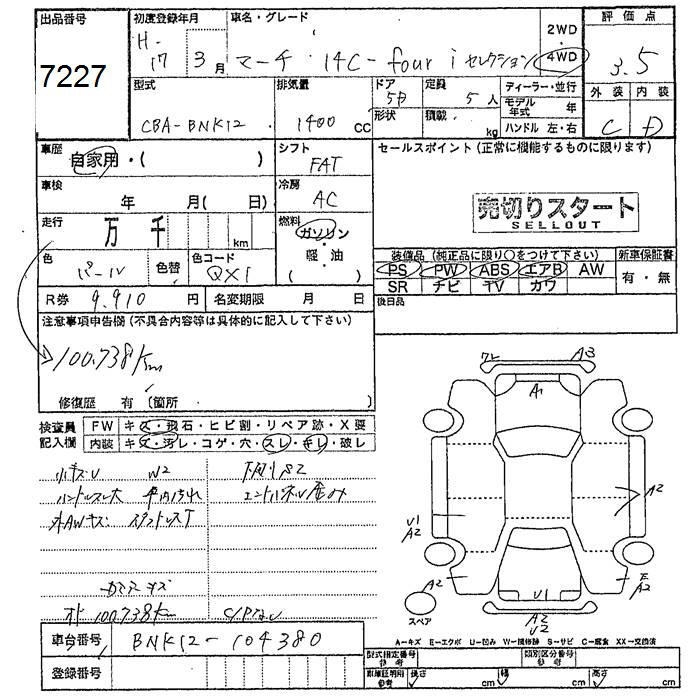 出品番号
7227
初度登録年月
H-17 3月
車名・グレード
マーチ 14C-four i セレクション
2WD・4WD
評価点
3.5
型式
CBA-BNK12
排気量
1400 CC
ドア
5D
形状
定員
5人
積載
kg
ディーラー・並行
モデル年式 年
ハンドル 左・右
外装 内装
C D
車歴
自家用・( )
シフト
FAT
セールスポイント (正常に機能するものに限ります)
売切りスタート
SELLOUT
車検
年 月( 日)
冷房
AC
走行
万 千 km
燃料
ガソリン
・
軽・油
色
パール
色替
色コード
QX1
装備品 (純正品に限り○をつけて下さい)
新車保証書
PS PW ABS エアB AW
有・無
SR ナビ TV カワ
R券 9,910 円
名変期限 月 日
後日品
注意事項申告欄 (不具合内容等は具体的に記入して下さい)
100,738Km
修復歴 有 (箇所 )
検査員記入欄
FW キズ・飛石・ヒビ割・リペア跡・X要
内装 キズ・汚レ・コゲ・穴・スレ・キレ・破レ
小キズU W2
下廻りS2
ハンドルスレ大
100,738Km
車台番号 BNK12-104380
登録番号
A3
A1
A2
U1
A2
A2
U1
E
A2
A2
U2
スペア
A-キズ E-エクボ U-凹み W-補修跡 S-サビ C-腐食 XX-交換済
型式指定番号 参考
類別区分番号 参考
車庫証明用 参考
長さ cm 幅 cm 高さ cm